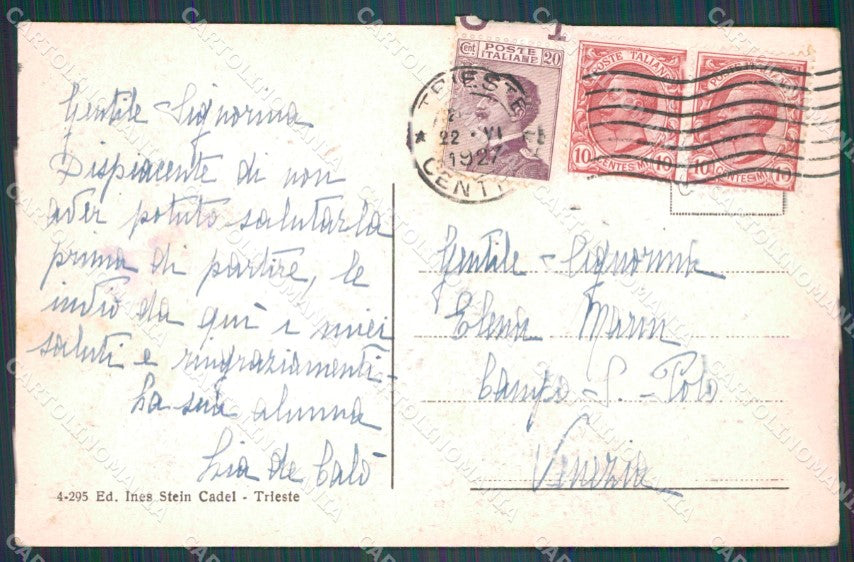 Gentile Signorina
Dispiacente di non
aver potuto salutarla
prima di partire, le
invio da qui i miei
saluti e ringraziamenti -
La sua alunna
Lia de Calò
4-295 Ed. Ines Stein Cadel - Trieste
Cent. POSTE ITALIANE 20
TRIESTE
22 · VI
1927
CENTR
POSTE ITALIANE
10 CENTESIMI 10
POSTE ITALIANE
10 CENTESIMI 10
Gentile - Signorina
Elena Marin
Campo - S. - Polo
Venezia
CARTOLINOMANIA